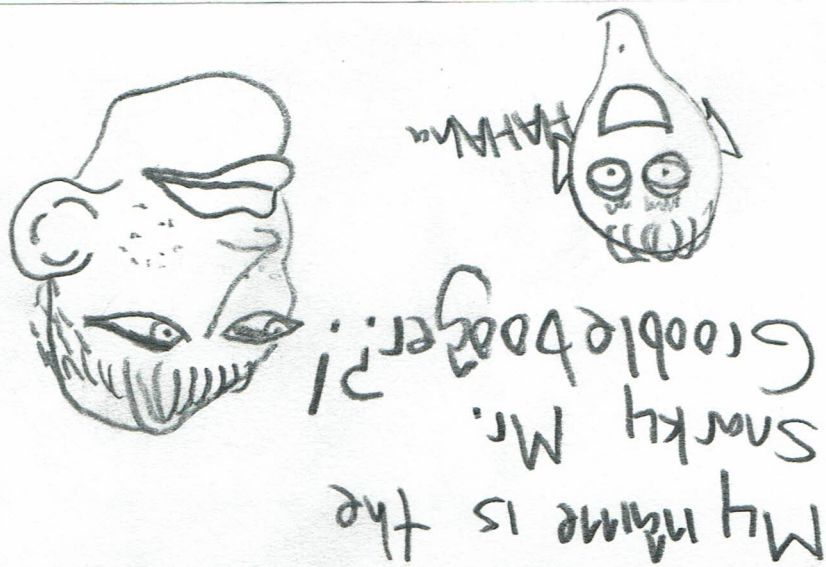 My name is the
Snarky Mr.
GroobleDooger..?!
HAHAHa